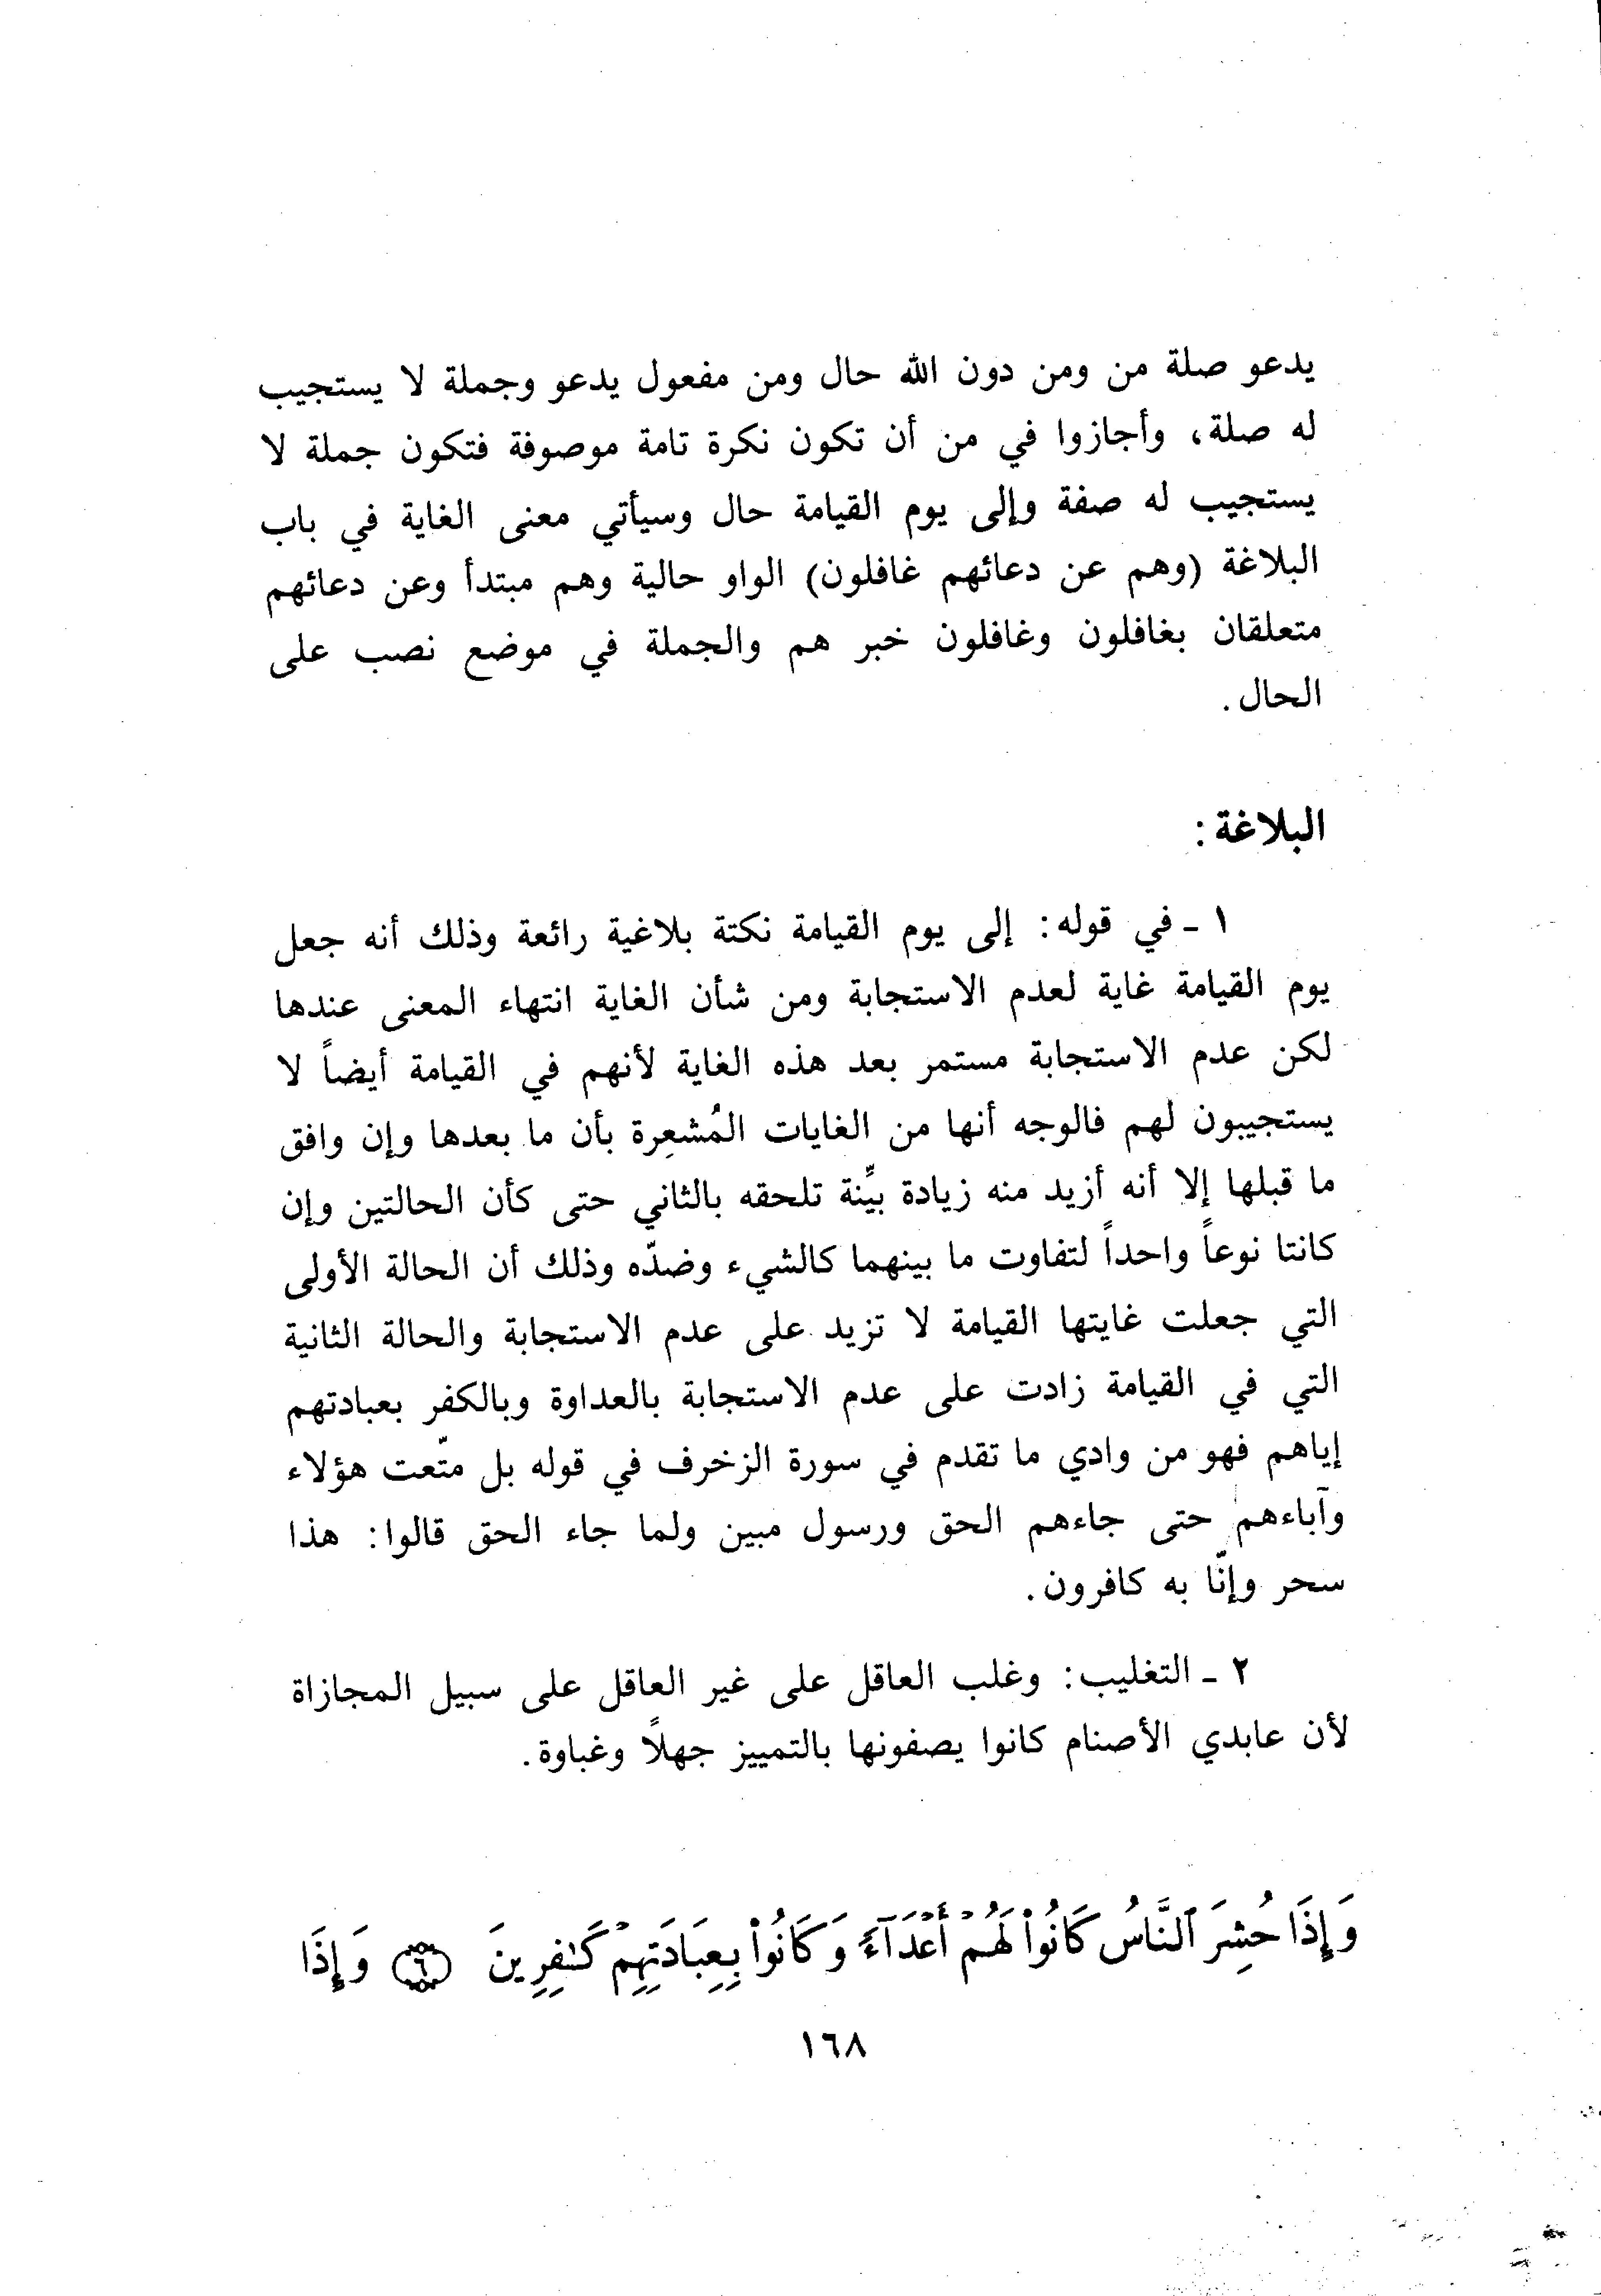 يدعو صلة من ومن دون الله حال ومن مفعول يدعو وجملة لا يستجيب
له صلة، وأجازوا في من أن تكون نكرة تامة موصوفة فتكون جملة لا
يستجيب له صفة وإلى يوم القيامة حال وسيأتي معنى الغاية في باب
البلاغة (وهم عن دعائهم غافلون) الواو حالية وهم مبتدأ وعن دعائهم
متعلقان بغافلون وغافلون خبر هم والجملة في موضع نصب على
الحال.
البلاغة:
١ - في قوله: إلى يوم القيامة نكتة بلاغية رائعة وذلك أنه جعل
يوم القيامة غاية لعدم الاستجابة ومن شأن الغاية انتهاء المعنى عندها
لكن عدم الاستجابة مستمر بعد هذه الغاية لأنهم في القيامة أيضاً لا
يستجيبون لهم فالوجه أنها من الغايات المُشعِرة بأن ما بعدها وإن وافق
ما قبلها إلا أنه أزيد منه زيادة بيِّنة تلحقه بالثاني حتى كأن الحالتين وإن
كانتا نوعاً واحداً لتفاوت ما بينهما كالشيء وضدّه وذلك أن الحالة الأولى
التي جعلت غايتها القيامة لا تزيد على عدم الاستجابة والحالة الثانية
التي في القيامة زادت على عدم الاستجابة بالعداوة وبالكفر بعبادتهم
إياهم فهو من وادي ما تقدم في سورة الزخرف في قوله بل متّعت هؤلاء
وآباءهم حتى جاءهم الحق ورسول مبين ولما جاء الحق قالوا: هذا
سحر وإنّا به كافرون.
٢ - التغليب: وغلب العاقل على غير العاقل على سبيل المجازاة
لأن عابدي الأصنام كانوا يصفونها بالتمييز جهلاً وغباوة.
وَإِذَا حُشِرَ ٱلنَّاسُ كَانُواْ لَهُمْ أَعْدَآءً وَكَانُواْ بِعِبَادَتِهِمْ كَـٰفِرِينَ ٦ وَإِذَا
١٦٨